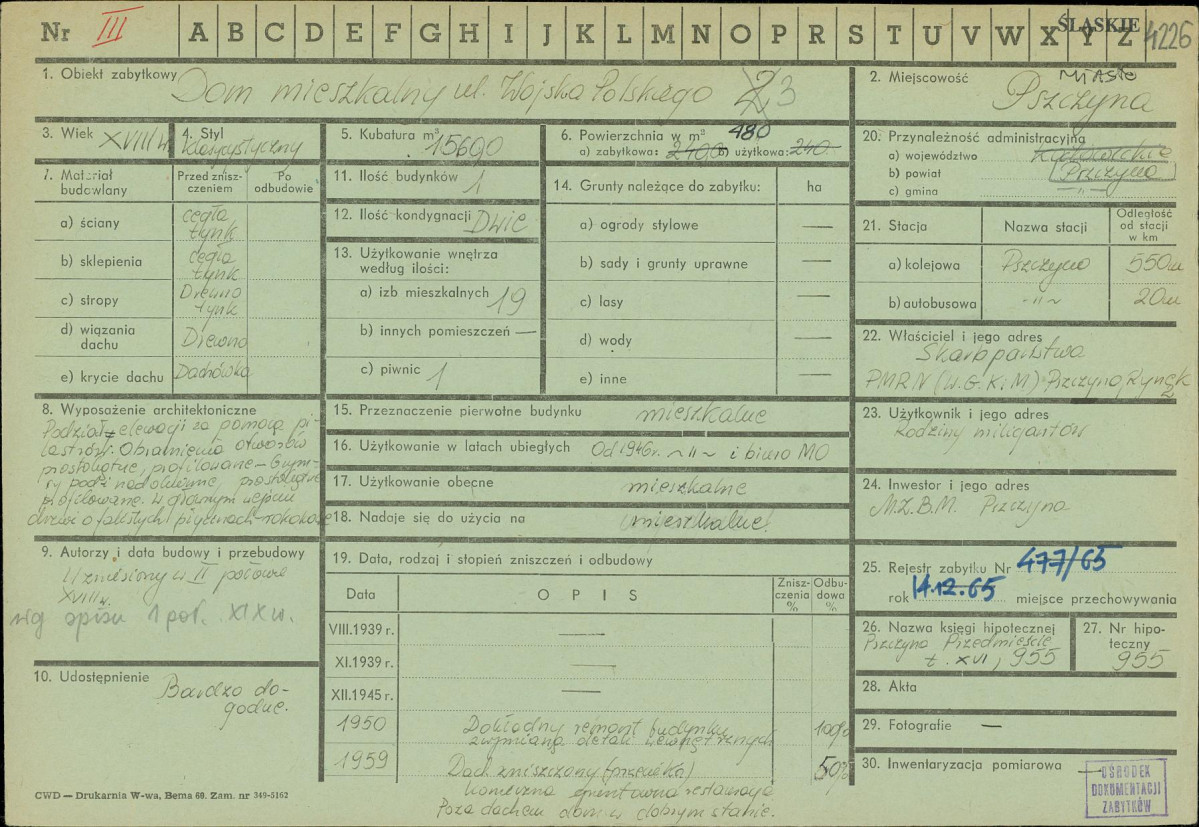 Nr III A B C D E F G H I J K L M N O P R S T U V W X Y Z ŚLĄSKIE 4226
1. Obiekt zabytkowy Dom mieszkalny ul. Wojska Polskiego 3
2. Miejscowość MIASTO
Pszczyna
3. Wiek XVIII w.
4. Styl
klasycystyczny
5. Kubatura m³
15600
6. Powierzchnia w m² 480
a) zabytkowa: 2400 b) użytkowa: 240
20. Przynależność administracyjna
a) województwo Katowickie
b) powiat Pszczyna
c) gmina —„—
7. Materiał budowlany
Przed zniszczeniem
Po odbudowie
a) ściany cegła
tynk
b) sklepienia cegła
tynk
c) stropy Drewno
tynk
d) wiązania dachu Drewno
e) krycie dachu Dachówka
11. Ilość budynków 1
12. Ilość kondygnacji Dwie
13. Użytkowanie wnętrza
według ilości:
a) izb mieszkalnych 19
b) innych pomieszczeń —
c) piwnic 1
14. Grunty należące do zabytku: ha
a) ogrody stylowe —
b) sady i grunty uprawne —
c) lasy —
d) wody —
e) inne —
21. Stacja
Nazwa stacji
Odległość
od stacji
w km
a) kolejowa Pszczyna 550 m
b) autobusowa -„- 20 m
22. Właściciel i jego adres
Skarb państwa
PMRN (W.G.K.iM) Pszczyna, Rynek
2
8. Wyposażenie architektoniczne
Podział elewacji za pomocą pi-
lastrów. Obramienia otworów
prostokątne, profilowane – Gzym-
sy podokienne, prostokątne
profilowane. W głównym wejściu
drzwi o falistych
15. Przeznaczenie pierwotne budynku mieszkalne
16. Użytkowanie w latach ubiegłych Od 1946r. ~„~ i biuro MO
17. Użytkowanie obecne mieszkalne
18. Nadaje się do użycia na mieszkalne.
23. Użytkownik i jego adres
Rodziny milicjantów
24. Inwestor i jego adres
M.Z.B.M. Pszczyna
9. Autorzy i data budowy i przebudowy
Wzniesiony w II połowie
XVIII w.
wg opisu 1 poł. XIX w.
19. Data, rodzaj i stopień zniszczeń i odbudowy
Data OPIS Znisz-
czenia
% Odbu-
dowa
%
VIII.1939 r. —
XI.1939 r. —
XII.1945 r. —
1950 Dokładny remont budynku
z wymianą detali wewnętrznych 100%
1959 Dach zniszczony (przecieka) 50%
Konieczna gruntowna restauracja
Poza dachem dom w dobrym stanie.
25. Rejestr zabytku Nr 477/65
rok 14.12.65 miejsce przechowywania
26. Nazwa księgi hipotecznej
Pszczyna Przedmieście
t. XVI, 955
27. Nr hipo-
teczny
955
10. Udostępnienie Bardzo do-
godne.
28. Akta
29. Fotografie —
30. Inwentaryzacja pomiarowa —
OŚRODEK
DOKUMENTACJI
ZABYTKÓW
CWD — Drukarnia W-wa, Bema 60. Zam. nr 349-5162